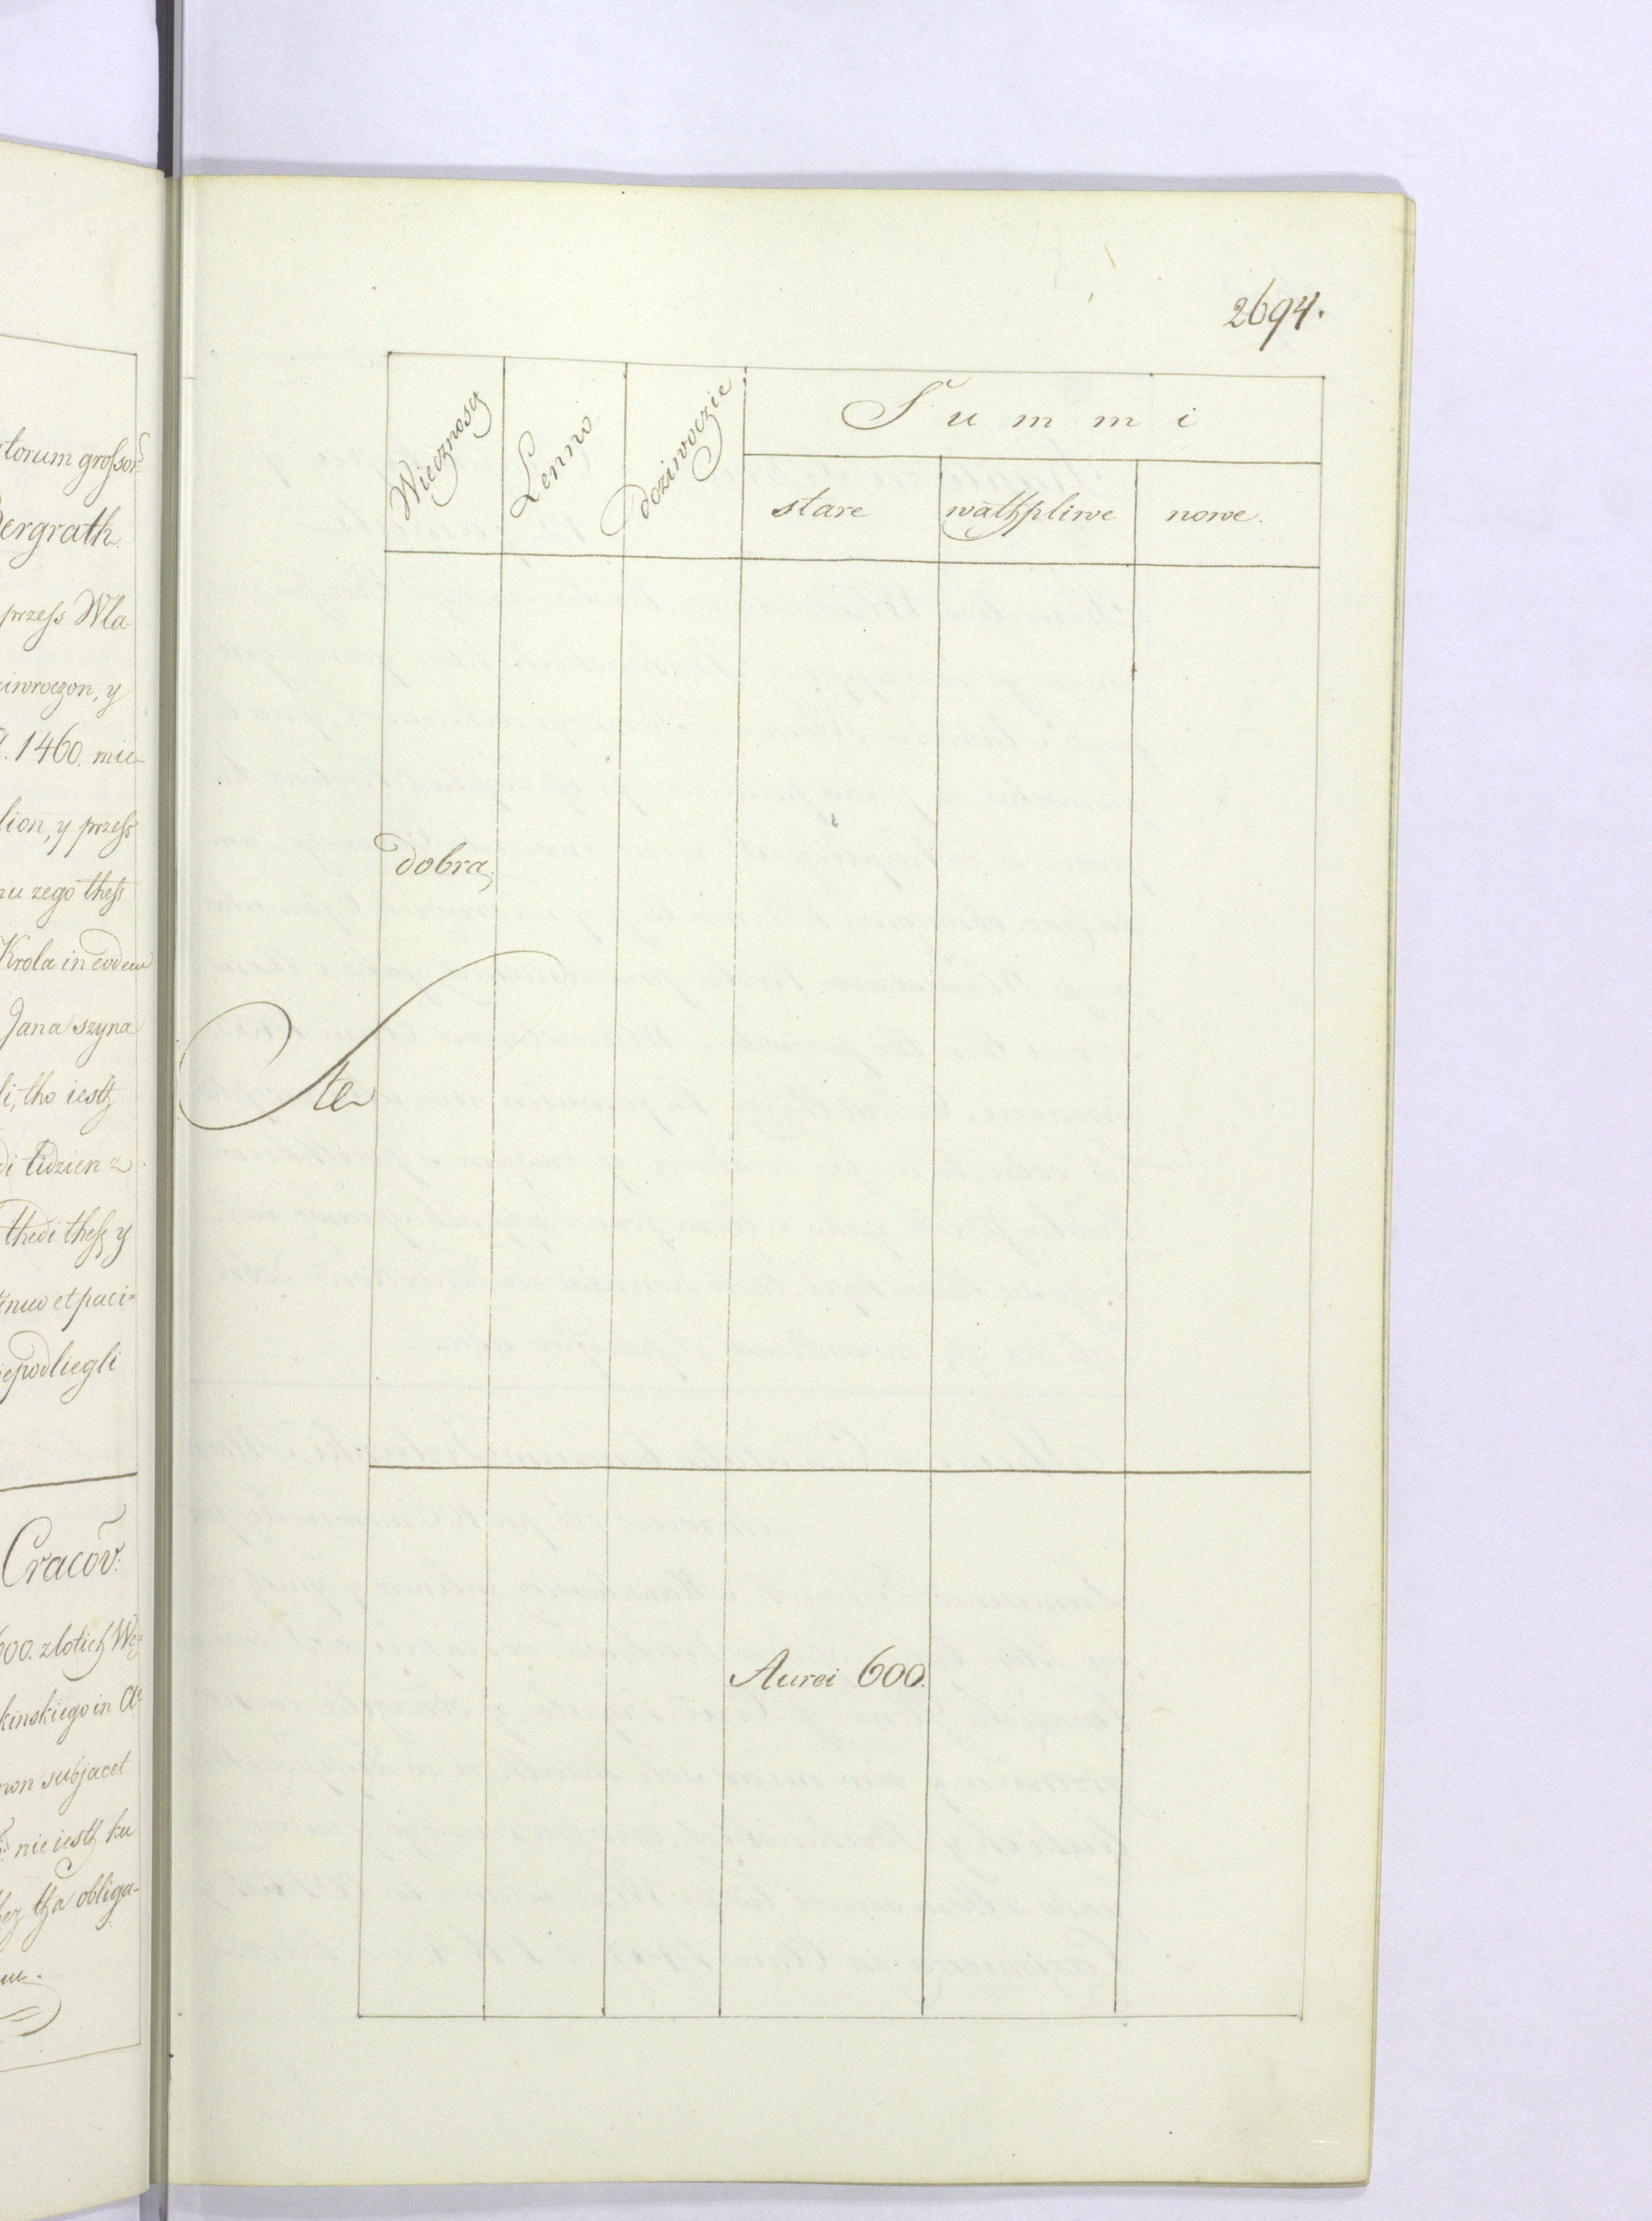 torum grosſor̃:
ergrath.
przeſs Wla-
iwoczon, y
1460. mie-
lion, y przeſs
nu zego theſs
Krola in eodem
Jana szyna
li, tho iesth
di tidzien z
thedi theſs y
tinuo et paci=
iepodliegli
Cracov̄:
600. zlotich We=
kinskiego in A°
non subjacet
nie iesth ku
bez tha obliga-
2694.
Wiecznoscz
Lenno
Doziwoczie
Summi
stare
wathpliwe
nowe.
dobra
Ste
Aurei 600.